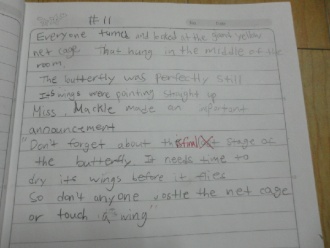 # 11
Everyone turned and looked at the giant yellow
net cage That hung in the middle of the
room.
The butterfly was perfectly still
Its wings were pointing straight up
Miss. Mackle made an
announcement
"Don't forget about stage of
the butterfly It needs time to
dry its wings before it flies
So don't anyone jostle the net cage
or touch a wing"